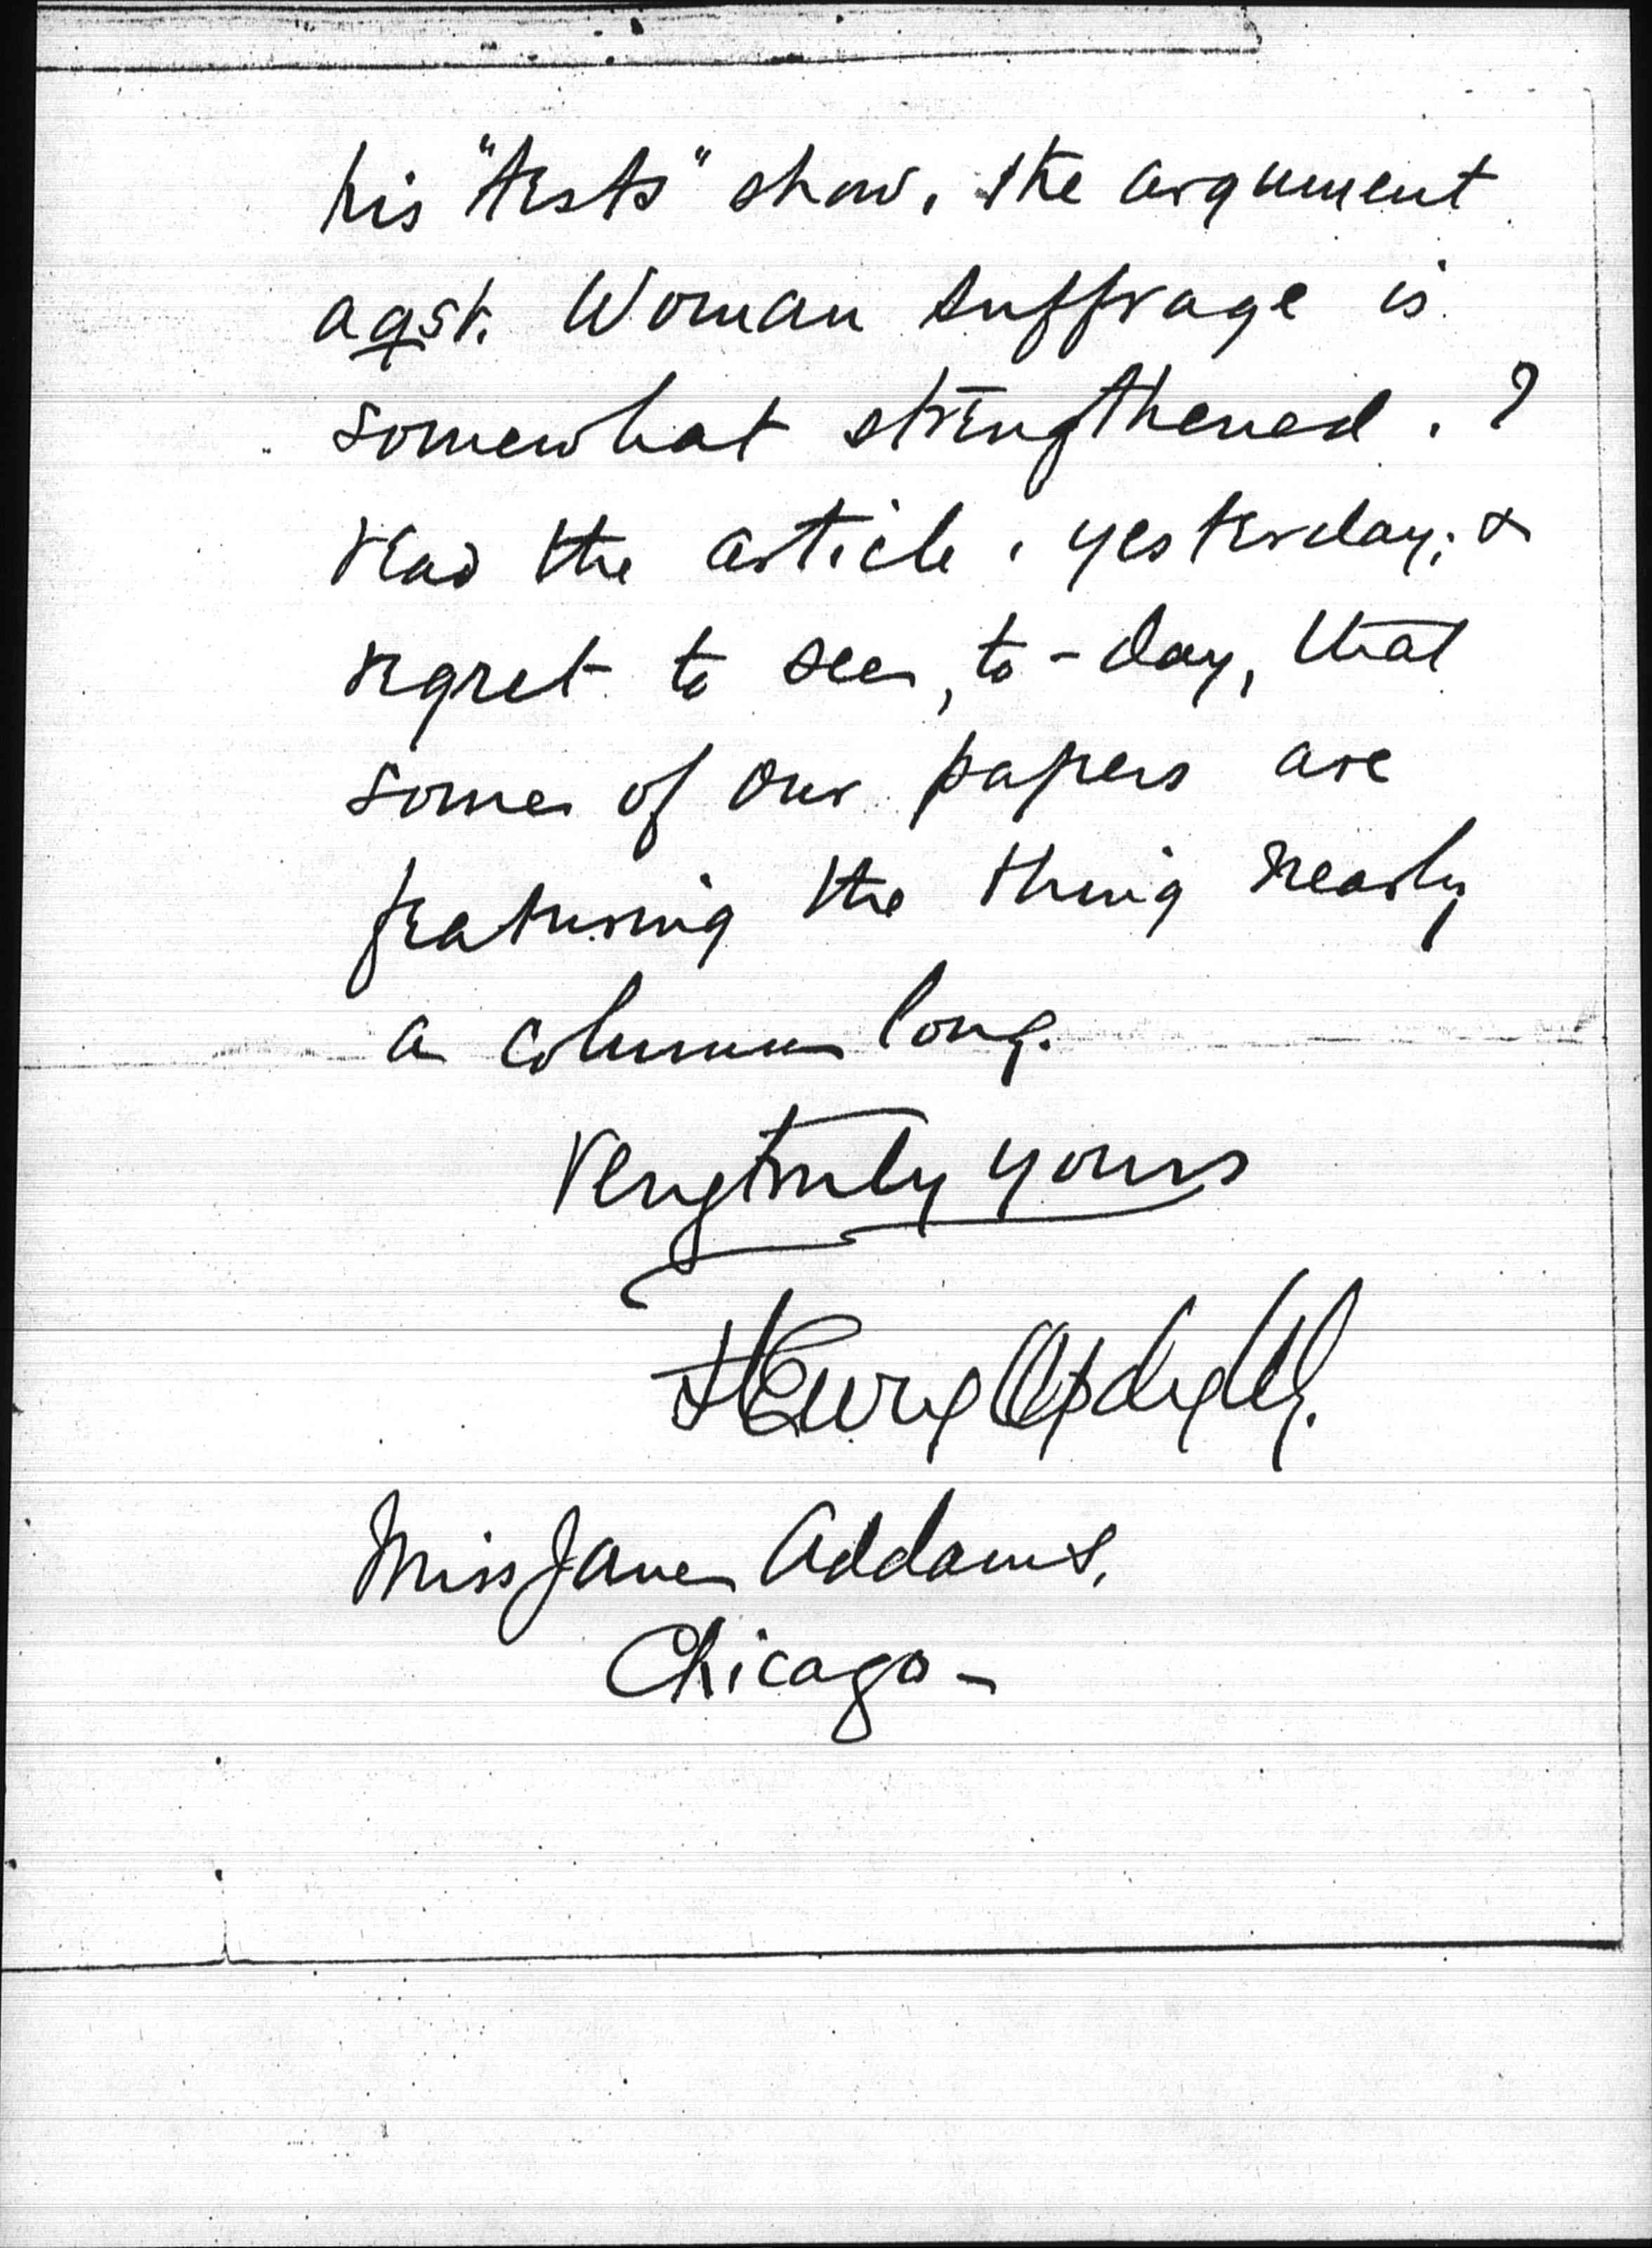 his "tests" show, the argument
agst. Woman suffrage is
somewhat strengthened. I
read the article, yesterday; &
regret to see, to-day, that
some of our papers are
featuring the thing nearly
a column long.
Very truly yours
Henry
Miss Jane Addams,
Chicago –